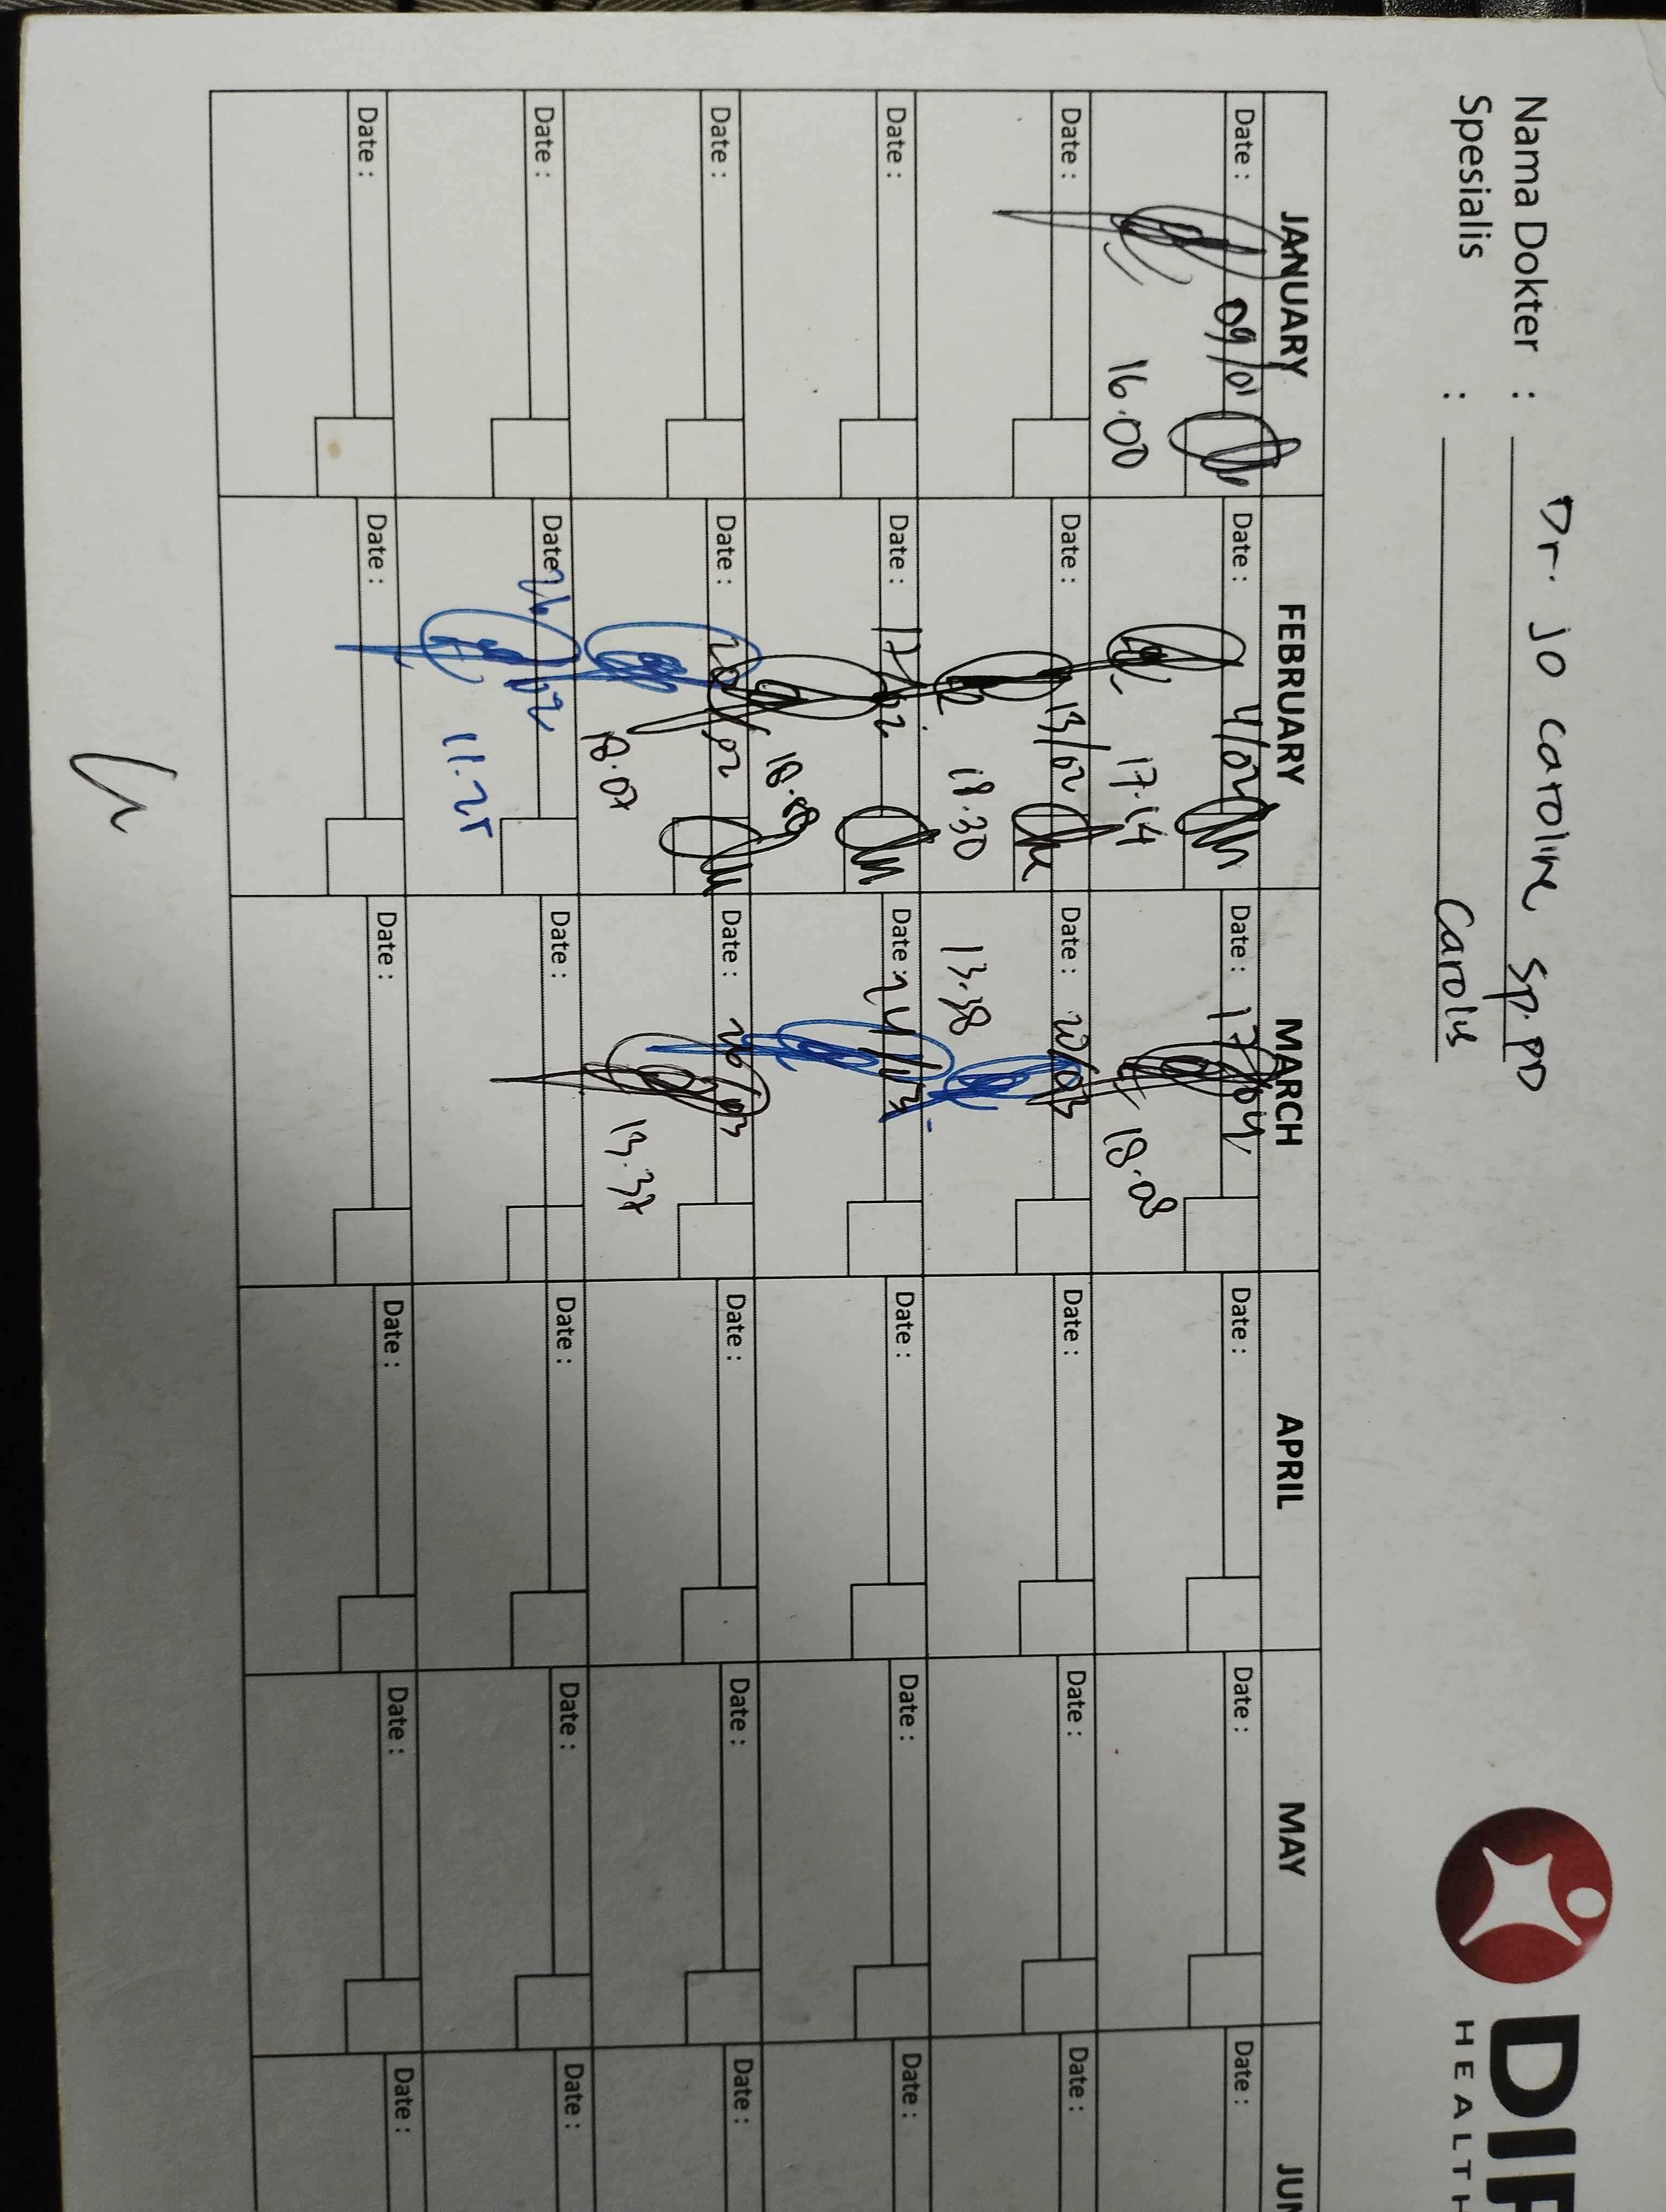 Nama Dokter : Dr. Jo Caroline, Sp.PD
Spesialis : Carolus
DIF
HEALTH
JANUARY FEBRUARY MARCH APRIL MAY JUN
Date : 09/01 Date : 4/02 Date : Date : Date : Date :
16.00 17.14 18.08
Date : Date : 13/02 Date : 20/03 Date : Date : Date :
18.30 13.38
Date : Date : 17/02 Date : 24/03 Date : Date : Date :
Date : Date : 20/02 Date : 26/03 Date : Date : Date :
18.07 13.37
Date : Date : 26/02 Date : Date : Date : Date :
11.25
Date : Date : Date : Date : Date : Date :